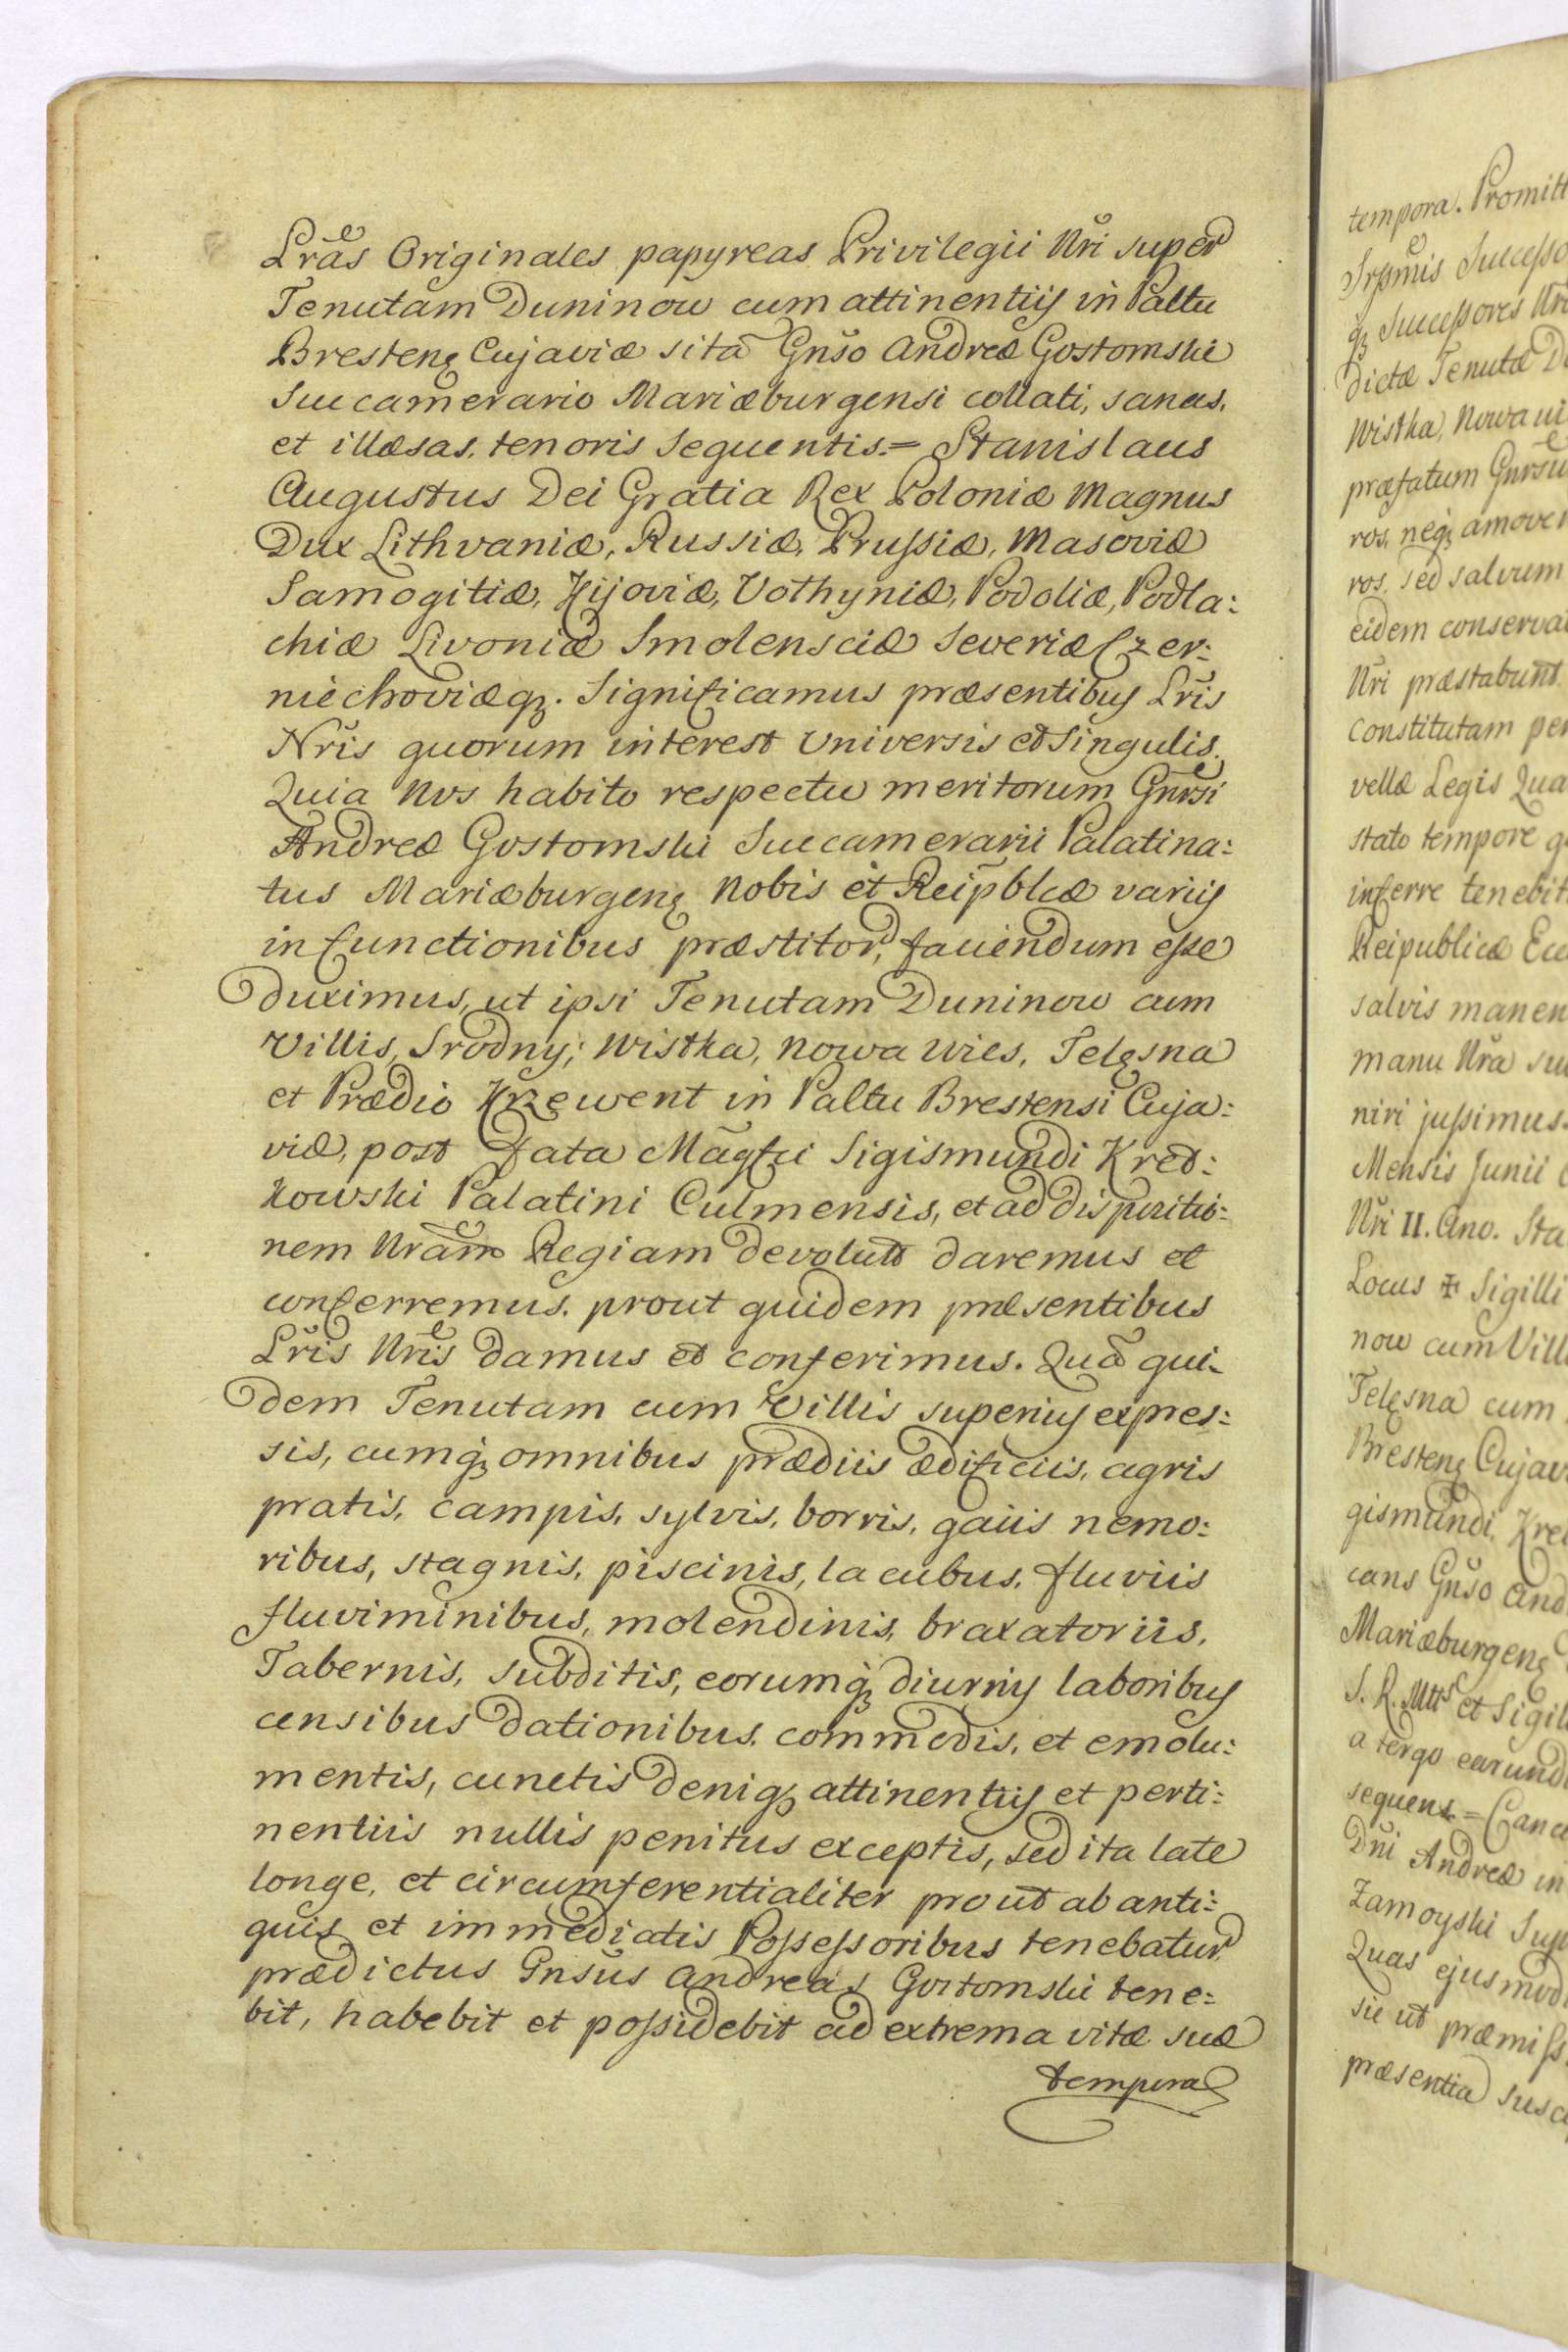 Lrãs Originales papyreas Privilegii Nri super
Tenutam Duninow cum attinentiis in Paltu
Bresteng Cujaviæ sitã Gnso Andreæ Gostomski
Succamerario Mariæburgensi collati, sanas,
et illæsas, tenoris sequentis.= Stanislaus
Augustus Dei Gratia Rex Poloniæ Magnus
Dux Lithvaniæ, Russiæ, Prussiæ, Masoviæ
Samogitiæ, Kijoviæ, Volhyniæ, Podoliæ, Podla:
chiæ Livoniæ Smolensciæ Severiæ Czer:
niechoviæq3. Significamus præsentibus Lris
Nris quorum interest Universis et Singulis.
Quia Nos habito respectu meritorum Gnrsi
Andreæ Gostomski Succamerarii Palatina:
tus Mariæburgeng Nobis et Reipblcæ variis
in functionibus præstitor, faciendum esse
duximus, ut ipsi Tenutam Duninow cum
Villis, Srodny, Wistka, Nowa Wies, Telęsna
et Prædio Krzewent in Paltu Brestensi Cuja:
viæ, post fata Magfci Sigismundi Kret:
kowski Palatini Culmensis, et ad dispositio:
nem Nram Regiam devolut daremus et
conferremus, prout quidem præsentibus
Lris Nris damus et conferimus. Quã qui:
dem Tenutam cum Villis superius expres:
sis, cumq3 omnibus prædiis ædificiis, agris
pratis, campis, sylvis, borris, gaiis nemo:
ribus, stagnis, piscinis, lacubus, fluviis
fluviminibus, molendinis, braxatoriis,
Tabernis, subditis, eorumq3 diurnis laboribus
censibus dationibus, commodis, et emolu:
mentis, cunctis deniq3 attinentiis et perti:
nentiis nullis penitus exceptis, sed ita late
longe, et circumferentialiter prout ab anti:
quis et immediatis Possessoribus tenebatur
prædictus Gnsus Andreas Gostomski tene:
bit, habebit et possidebit ad extrema vitæ suæ
tempora
tempora. Promitt
Successo
q3 Successores Nri
dictæ Tenutæ Du
Wistka, Nowa wi
præfatum Gnrsu
ros, neq3 amover
ros, sed salvum
eidem conserva
Nri præstabunt
constitutam per
vellæ Legis Qua
stato tempore q
inferre tenebit
Reipublicæ Ecc
salvis manen
manu Nra su
niri jussimus.
Mensis Junii
Nri II. Ano. Sta
Locus ✠ Sigilli
now cum Vill
Telęsna cum
Bresteng Cujav
gismundi, Kret
cans Gnso And
Mariæburgeng
S. R. Mtts et Sigil
a tergo earund
sequens = Cance
Dni Andreæ in
Zamoyski Sup
Quas ejusmodi
sic ut præmiss
præsentia susce